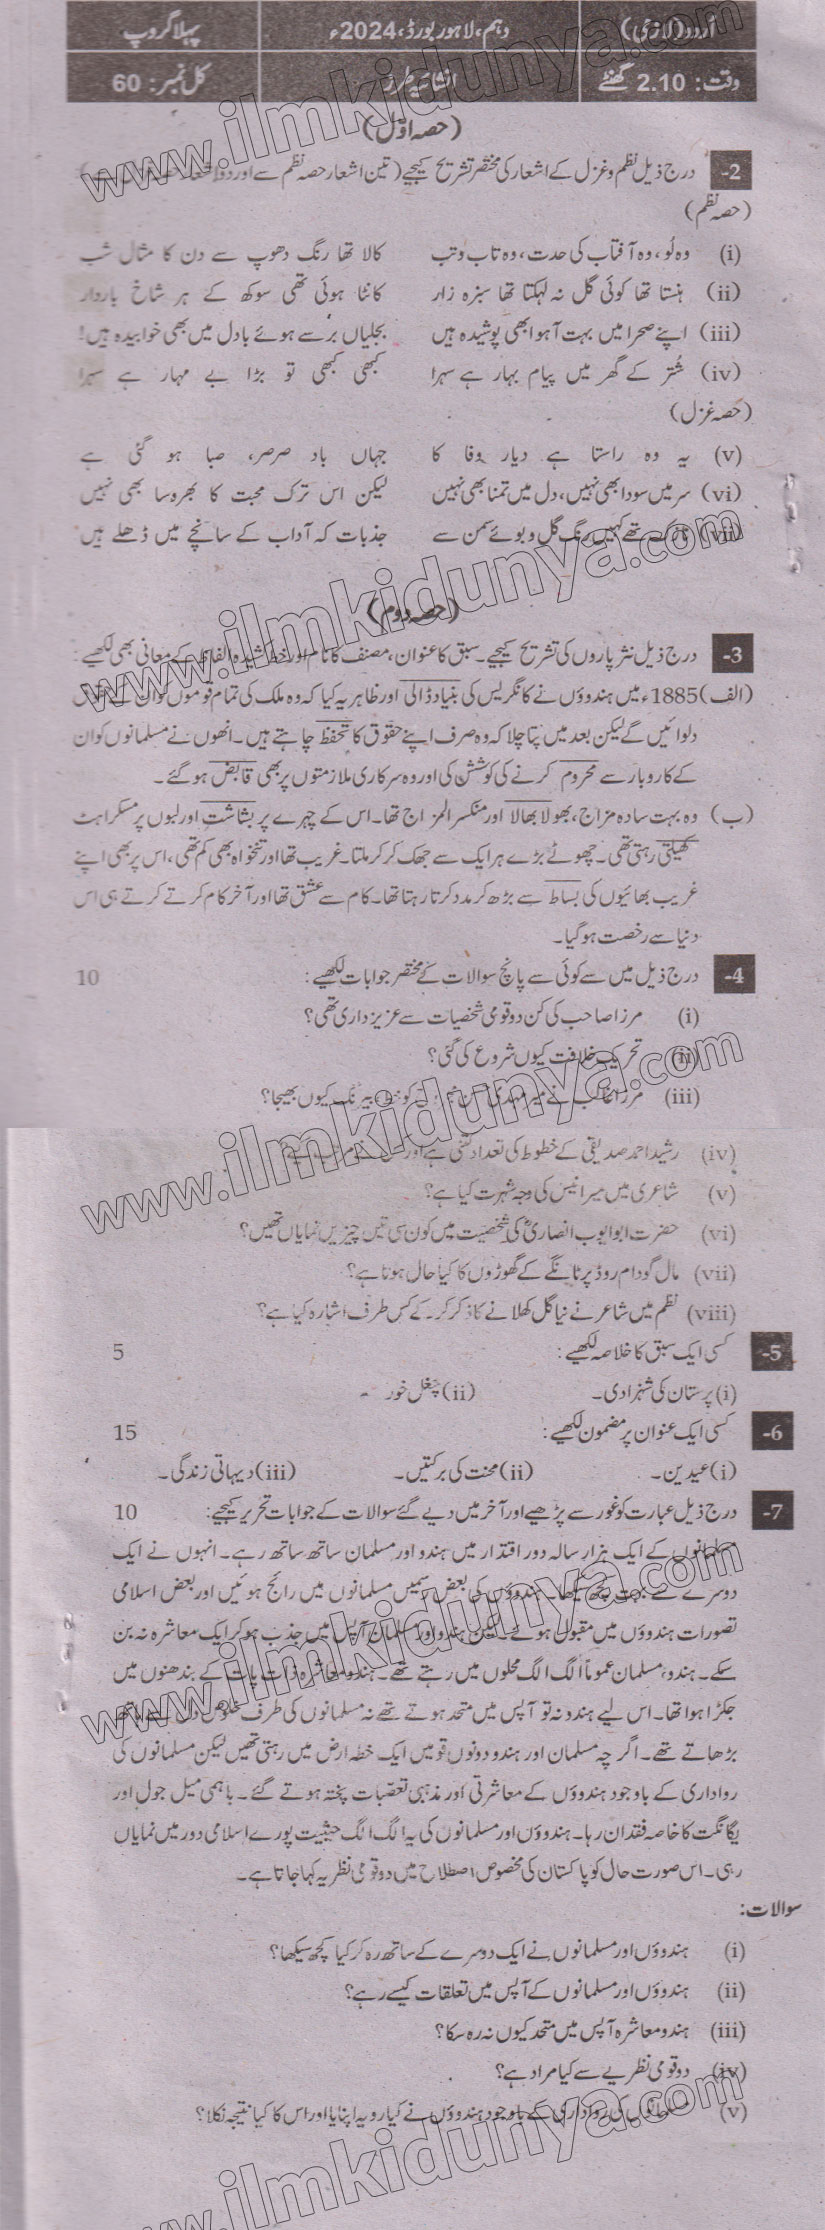 اُردو (لازمی) دہم، لاہور بورڈ، 2024ء پہلا گروپ
وقت: 2.10 گھنٹے انشائیہ طرز کل نمبر: 60
(حصہ اوّل)
2- درج ذیل نظم و غزل کے اشعار کی مختصر تشریح کیجیے (تین اشعار حصہ نظم سے اور دو
(حصہ نظم)
(i) وہ لُو، وہ آفتاب کی حدت، وہ تاب و تب کالا تھا رنگ دھوپ سے دن کا مثال شب
(ii) ہنستا تھا کوئی گل نہ لہکتا تھا سبزہ زار کانٹا ہوئی تھی سوکھ کے ہر شاخ باردار
(iii) اپنے صحرا میں بہت آہو ابھی پوشیدہ ہیں بجلیاں برسے ہوئے بادل میں بھی خوابیدہ ہیں!
(iv) شُتر کے گھر میں پیام بہار ہے سہرا کبھی کبھی تو بڑا بے مہار ہے سہرا
(حصہ غزل)
(v) یہ وہ راستا ہے دیار وفا کا جہاں باد صرصر، صبا ہو گئی ہے
(vi) سر میں سودا بھی نہیں، دل میں تمنا بھی نہیں لیکن اس ترک محبت کا بھروسا بھی نہیں
(vii) تھے کہیں رنگ گل و بوئے سمن سے جذبات کہ آداب کے سانچے میں ڈھلے ہیں
(حصہ دوم)
3- درج ذیل نثر پاروں کی تشریح کیجیے۔ سبق کا عنوان، مصنف کا نام اور خط کشیدہ الفاظ کے معانی بھی لکھیے:
(الف) 1885ء میں ہندوؤں نے کانگریس کی بنیاد ڈالی اور ظاہر یہ کیا کہ وہ ملک کی تمام قوموں کو ان کے
دلوائیں گے لیکن بعد میں پتا چلا کہ وہ صرف اپنے حقوق کا تحفظ چاہتے ہیں۔ انھوں نے مسلمانوں کو ان
کے کاروبار سے محروم کرنے کی کوشش کی اور وہ سرکاری ملازمتوں پر بھی قابض ہو گئے۔
(ب) وہ بہت سادہ مزاج، بھولا بھالا اور منکسر المزاج تھا۔ اس کے چہرے پر بشاشت اور لبوں پر مسکراہٹ
کھیلتی رہتی تھی۔ چھوٹے بڑے ہر ایک سے جھک کر کر ملتا۔ غریب تھا اور تنخواہ بھی کم تھی، اس پر بھی اپنے
غریب بھائیوں کی بساط سے بڑھ کر مدد کرتا رہتا تھا۔ کام سے عشق تھا اور آخر کام کرتے کرتے ہی اس
دنیا سے رخصت ہو گیا۔
4- درج ذیل میں سے کوئی سے پانچ سوالات کے مختصر جوابات لکھیے: 10
(i) مرزا صاحب کی کن دو قومی شخصیات سے عزیز داری تھی؟
(ii) تحریک خلافت کیوں شروع کی گئی؟
(iii) مرزا غالب نے میر مہدی کو خط بیرنگ کیوں بھیجا؟
(iv) رشید احمد صدیقی کے خطوط کی تعداد کتنی ہے اور
(v) شاعری میں میر انیس کی وجہ شہرت کیا ہے؟
(vi) حضرت ابو ایوب انصاریؓ کی شخصیت میں کون سی تین چیزیں نمایاں تھیں؟
(vii) مال گودام روڈ پر ٹانگے کے گھوڑوں کا کیا حال ہوتا ہے؟
(viii) نظم میں شاعر نے نیا گل کھلانے کا ذکر کر کے کس طرف اشارہ کیا ہے؟
5- کسی ایک سبق کا خلاصہ لکھیے: 5
(i) پرستان کی شہزادی۔ (ii) چغل خور
6- کسی ایک عنوان پر مضمون لکھیے: 15
(i) عیدین۔ (ii) محنت کی برکتیں۔ (iii) دیہاتی زندگی۔
7- درج ذیل عبارت کو غور سے پڑھیے اور آخر میں دیے گئے سوالات کے جوابات تحریر کیجیے: 10
مسلمانوں کے ایک ہزار سالہ دور اقتدار میں ہندو اور مسلمان ساتھ ساتھ رہے۔ انہوں نے ایک
دوسرے سے بہت کچھ سیکھا۔ ہندوؤں کی بعض رسمیں مسلمانوں میں رائج ہوئیں اور بعض اسلامی
تصورات ہندوؤں میں مقبول ہوئے۔ لیکن ہندو اور مسلمان آپس میں جذب ہو کر ایک معاشرہ نہ بن
سکے۔ ہندو، مسلمان عموماً الگ الگ محلوں میں رہتے تھے۔ ہندو معاشرہ ذات پات کے بندھنوں میں
جکڑا ہوا تھا۔ اس لیے ہندو نہ تو آپس میں متحد ہوتے تھے نہ مسلمانوں کی طرف خلوص دل سے ہاتھ
بڑھاتے تھے۔ اگرچہ مسلمان اور ہندو دونوں قومیں ایک خطہ ارض میں رہتی تھیں لیکن مسلمانوں کی
رواداری کے باوجود ہندوؤں کے معاشرتی اور مذہبی تعصبات پختہ ہوتے گئے۔ باہمی میل جول اور
یگانگت کا خاصہ فقدان رہا۔ ہندوؤں اور مسلمانوں کی یہ الگ الگ حیثیت پورے اسلامی دور میں نمایاں
رہی۔ اس صورت حال کو پاکستان کی مخصوص اصطلاح میں دو قومی نظریہ کہا جاتا ہے۔
سوالات:
(i) ہندوؤں اور مسلمانوں نے ایک دوسرے کے ساتھ رہ کر کیا کچھ سیکھا؟
(ii) ہندوؤں اور مسلمانوں کے آپس میں تعلقات کیسے رہے؟
(iii) ہندو معاشرہ آپس میں متحد کیوں نہ رہ سکا؟
(iv) دو قومی نظریے سے کیا مراد ہے؟
(v) مسلمانوں کی رواداری کے باوجود ہندوؤں نے کیا رویہ اپنایا اور اس کا کیا نتیجہ نکلا؟
www.ilmkidunya.com
www.ilmkidunya.com
www.ilmkidunya.com
www.ilmkidunya.com
www.ilmkidunya.com